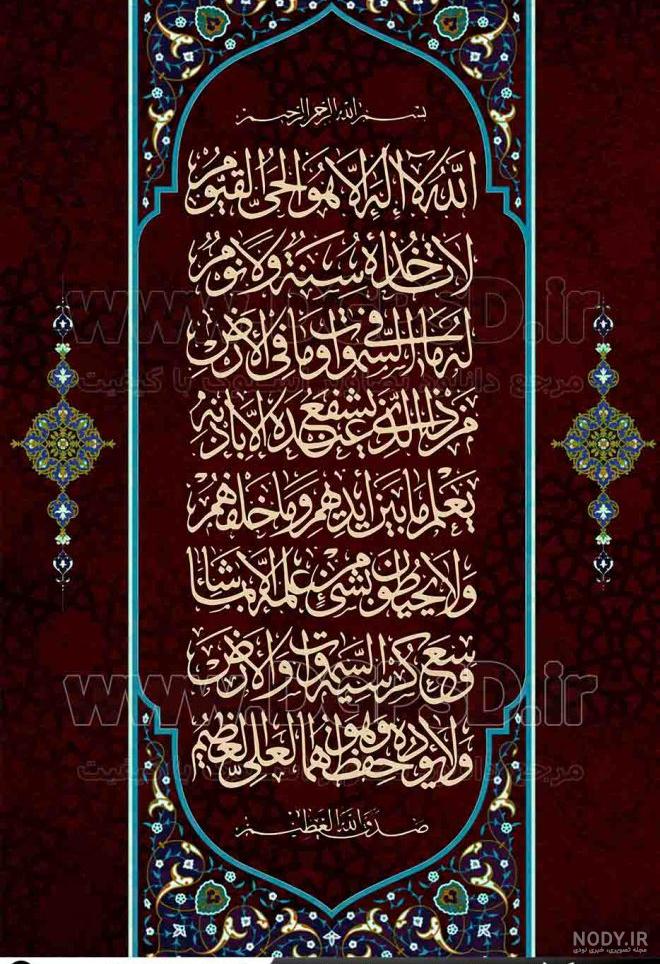 بسم الله الرحمن الرحیم
اللّٰهُ لَا إِلٰهَ إِلَّا هُوَ الْحَيُّ الْقَيُّومُ
لَا تَأْخُذُهُ سِنَةٌ وَلَا نَوْمٌ
لَهُ مَا فِي السَّمٰوَاتِ وَمَا فِي الْأَرْضِ
مَنْ ذَا الَّذِي يَشْفَعُ عِنْدَهُ إِلَّا بِإِذْنِهِ
يَعْلَمُ مَا بَيْنَ أَيْدِيهِمْ وَمَا خَلْفَهُمْ
وَلَا يُحِيطُونَ بِشَيْءٍ مِنْ عِلْمِهِ إِلَّا بِمَا شَاءَ
وَسِعَ كُرْسِيُّهُ السَّمٰوَاتِ وَالْأَرْضَ
وَلَا يَئُودُهُ حِفْظُهُمَا وَهُوَ الْعَلِيُّ الْعَظِيمُ
صدق الله العظیم
NODY.IR
مجله تصویری، خبری نودی